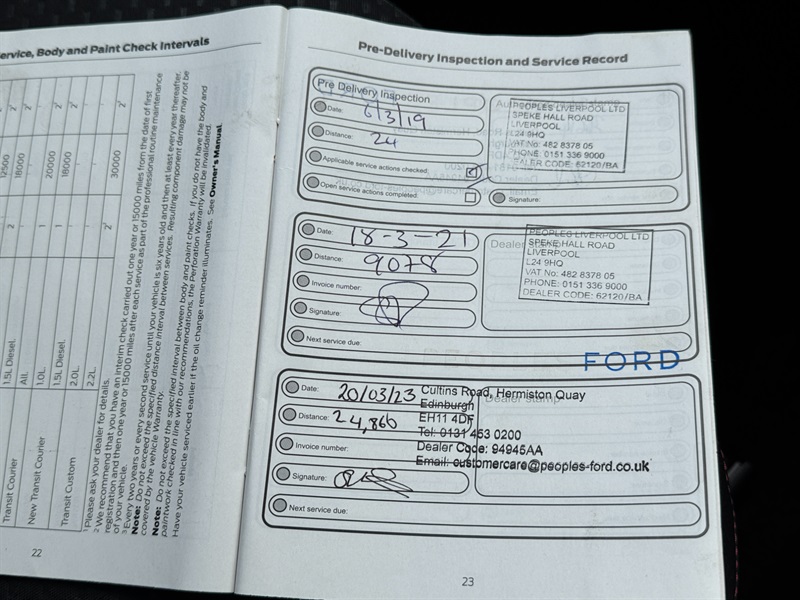 ervice, Body and Paint Check Intervals
12500 2¹
1.5L Diesel. 2 18000 2¹
All. - - -
New Transit Courier 1.0L. 1 20000 2¹
1.5L Diesel. 1 18000 2¹
Transit Courier
Transit Custom
2.0L.
2.2L. 2¹ 30000 2¹
¹ Please ask your dealer for details.
² We recommend that you have an interim check carried out one year or 15000 miles from the date of first
registration and then one year or 15000 miles after each service as part of the professional routine maintenance
of your vehicle.
³ Every two years or every second service until your vehicle is six years old and then at least every year thereafter.
Note: Do not exceed the specified distance interval between services. Resulting component damage may not be
covered by the vehicle Warranty.
Note: Do not exceed the specified interval between body and paint checks. If you do not have the body and
paintwork checked in line with our recommendations, the Perforation Warranty will be invalidated.
Have your vehicle serviced earlier if the oil change reminder illuminates. See Owner's Manual.
22
Pre-Delivery Inspection and Service Record
Pre Delivery Inspection
Date: 6/3/19
Distance: 24
Applicable service actions checked:
Open service actions completed:
PEOPLES LIVERPOOL LTD
SPEKE HALL ROAD
LIVERPOOL
L24 9HQ
VAT No: 482 8378 05
PHONE: 0151 336 9000
DEALER CODE: 62120/BA
Signature:
Date: 18-3-21
Distance: 9078
Invoice number:
Signature:
Next service due:
Dealer
PEOPLES LIVERPOOL LTD
SPEKE HALL ROAD
LIVERPOOL
L24 9HQ
VAT No: 482 8378 05
PHONE: 0151 336 9000
DEALER CODE: 62120/BA
FORD
Date: 20/03/23
Distance: 24,866
Invoice number:
Signature:
Next service due:
Dealer stamp
Cultins Road, Hermiston Quay
Edinburgh
EH11 4DF
Tel: 0131 453 0200
Dealer Code: 94945AA
Email: customercare@peoples-ford.co.uk
23